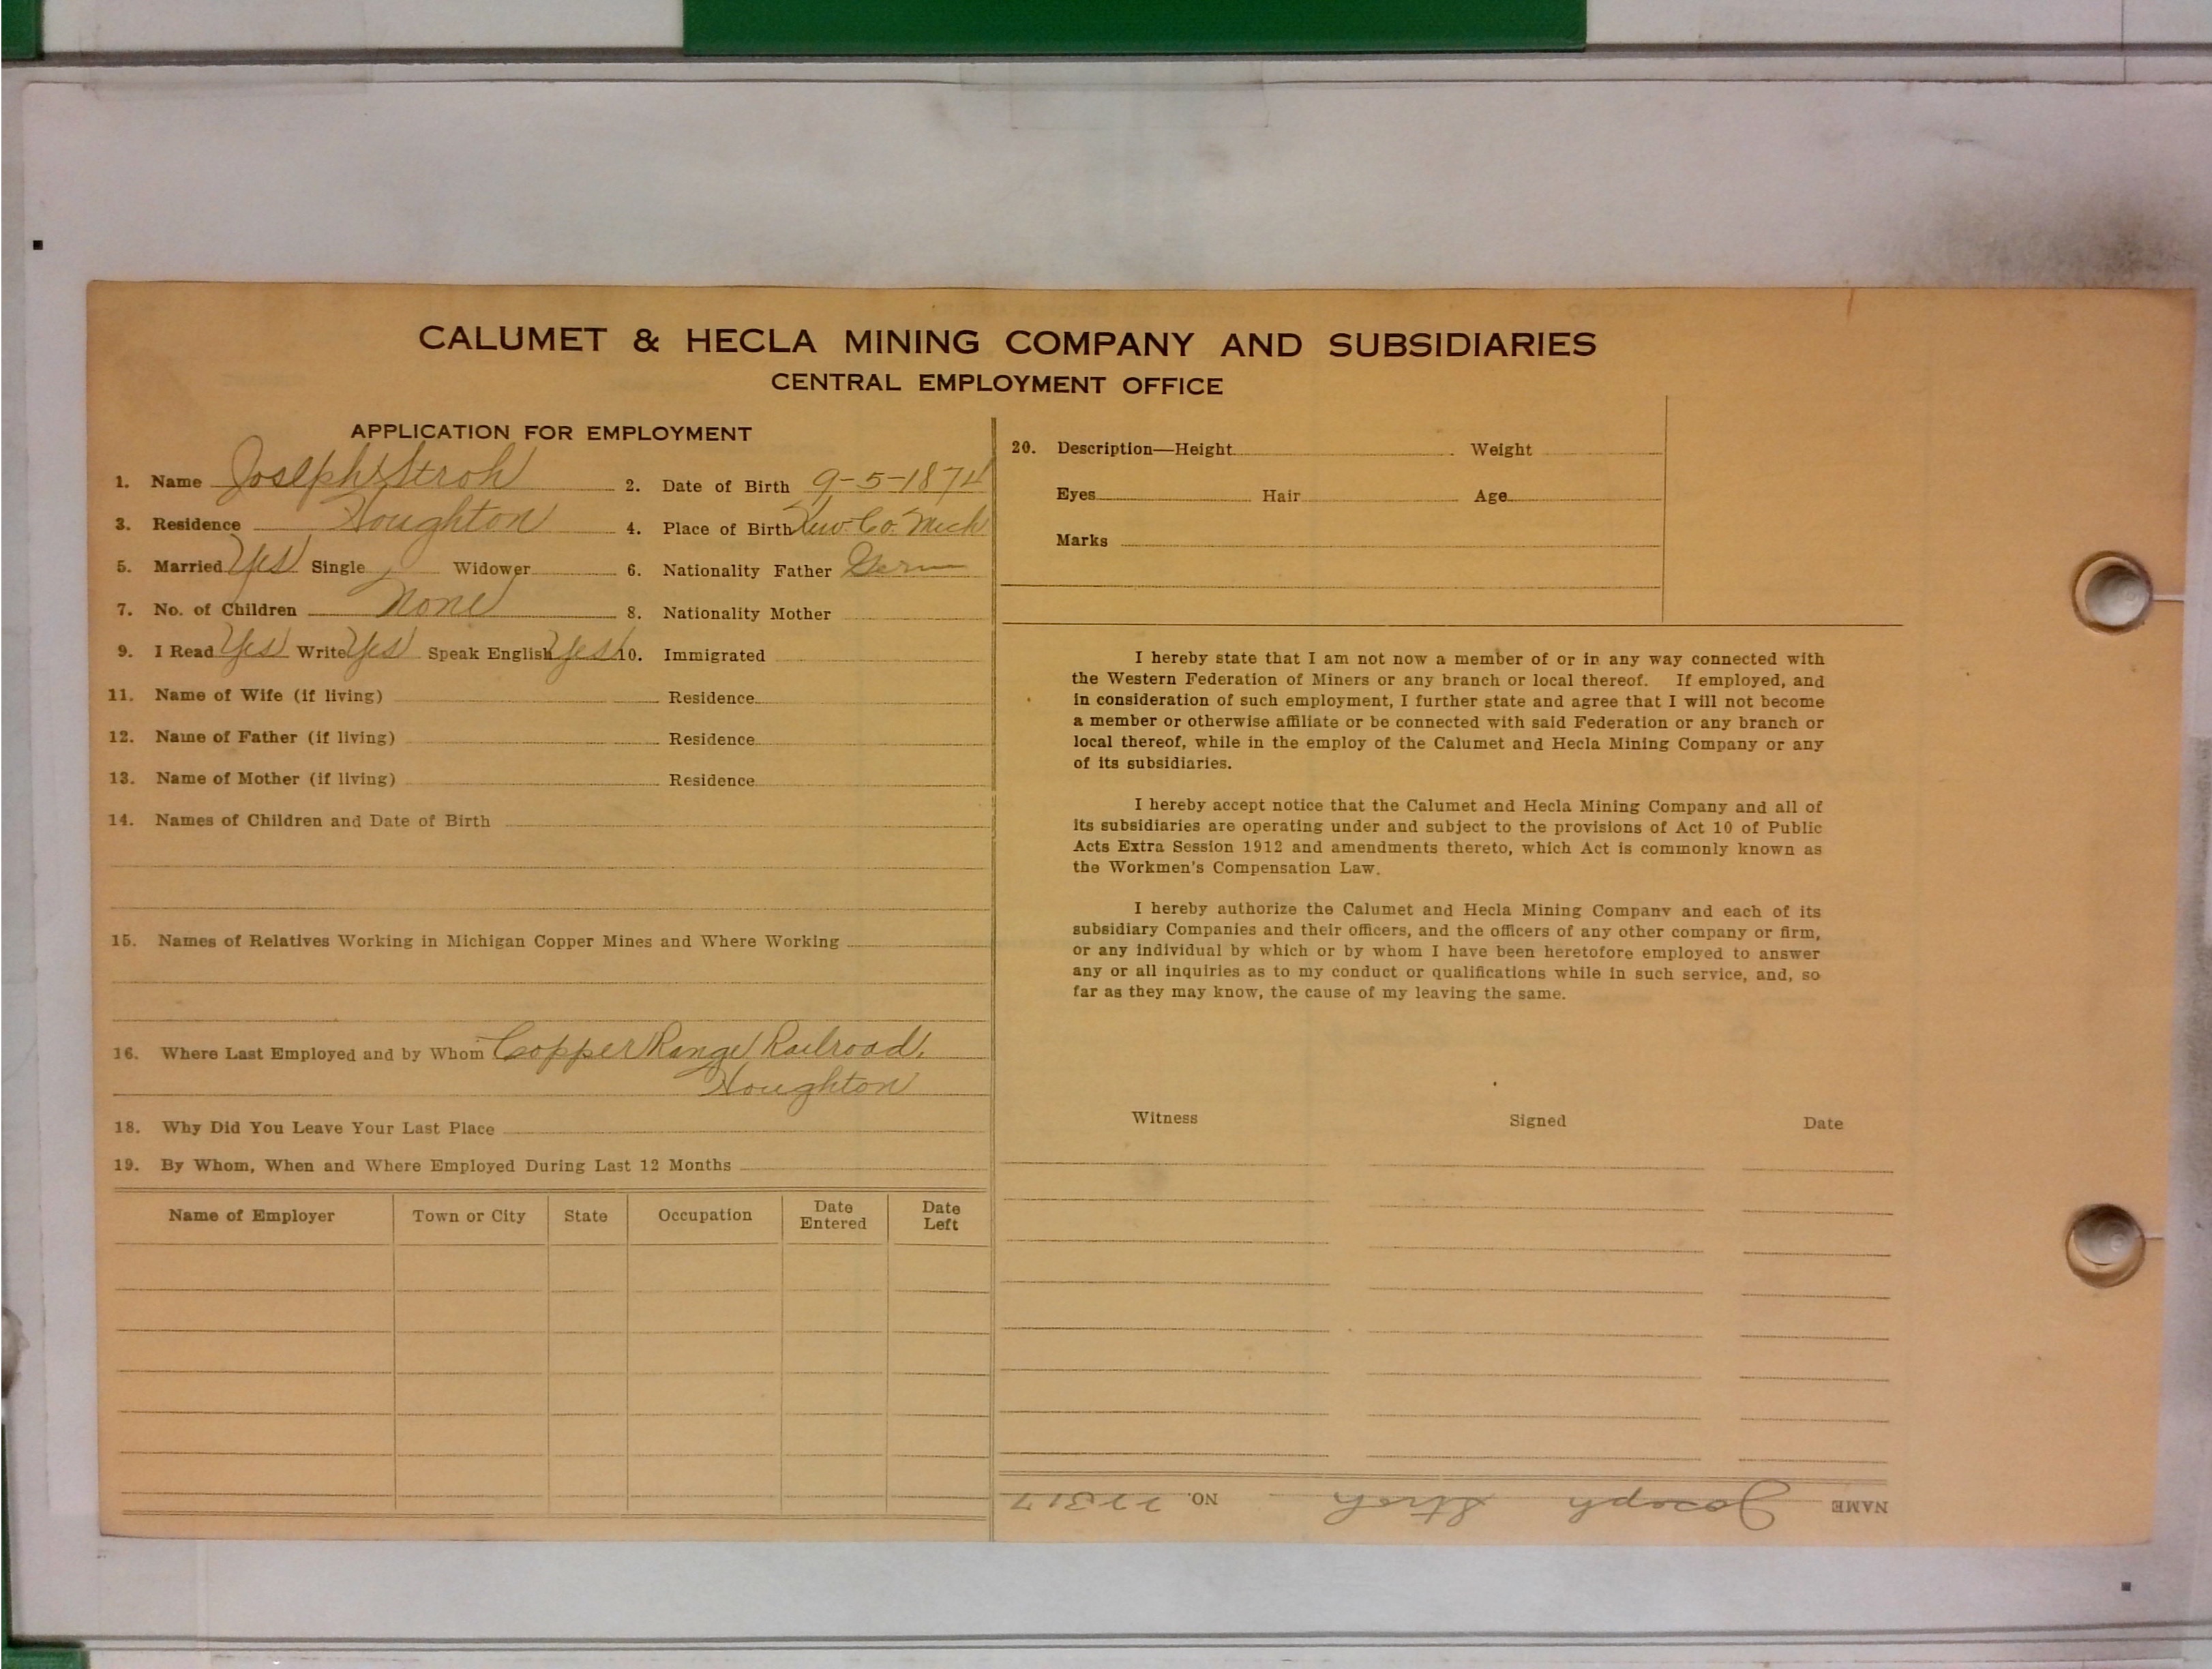 CALUMET & HECLA MINING COMPANY AND SUBSIDIARIES
CENTRAL EMPLOYMENT OFFICE
APPLICATION FOR EMPLOYMENT
1. Name Joseph Stroh 2. Date of Birth 9-5-1874
3. Residence Houghton 4. Place of Birth Kew. Co. Mich
5. Married Yes Single Widower 6. Nationality Father Germ
7. No. of Children None 8. Nationality Mother
9. I Read Yes Write Yes Speak English Yes 10. Immigrated
11. Name of Wife (if living) Residence
12. Name of Father (if living) Residence
13. Name of Mother (if living) Residence
14. Names of Children and Date of Birth
15. Names of Relatives Working in Michigan Copper Mines and Where Working
16. Where Last Employed and by Whom Copper Range Railroad.
Houghton
18. Why Did You Leave Your Last Place
19. By Whom, When and Where Employed During Last 12 Months
Name of Employer Town or City State Occupation Date Entered Date Left
20. Description—Height Weight
Eyes Hair Age
Marks
I hereby state that I am not now a member of or in any way connected with
the Western Federation of Miners or any branch or local thereof. If employed, and
in consideration of such employment, I further state and agree that I will not become
a member or otherwise affiliate or be connected with said Federation or any branch or
local thereof, while in the employ of the Calumet and Hecla Mining Company or any
of its subsidiaries.
I hereby accept notice that the Calumet and Hecla Mining Company and all of
its subsidiaries are operating under and subject to the provisions of Act 10 of Public
Acts Extra Session 1912 and amendments thereto, which Act is commonly known as
the Workmen's Compensation Law.
I hereby authorize the Calumet and Hecla Mining Company and each of its
subsidiary Companies and their officers, and the officers of any other company or firm,
or any individual by which or by whom I have been heretofore employed to answer
any or all inquiries as to my conduct or qualifications while in such service, and, so
far as they may know, the cause of my leaving the same.
Witness Signed Date
NAME Joseph Stroh NO.